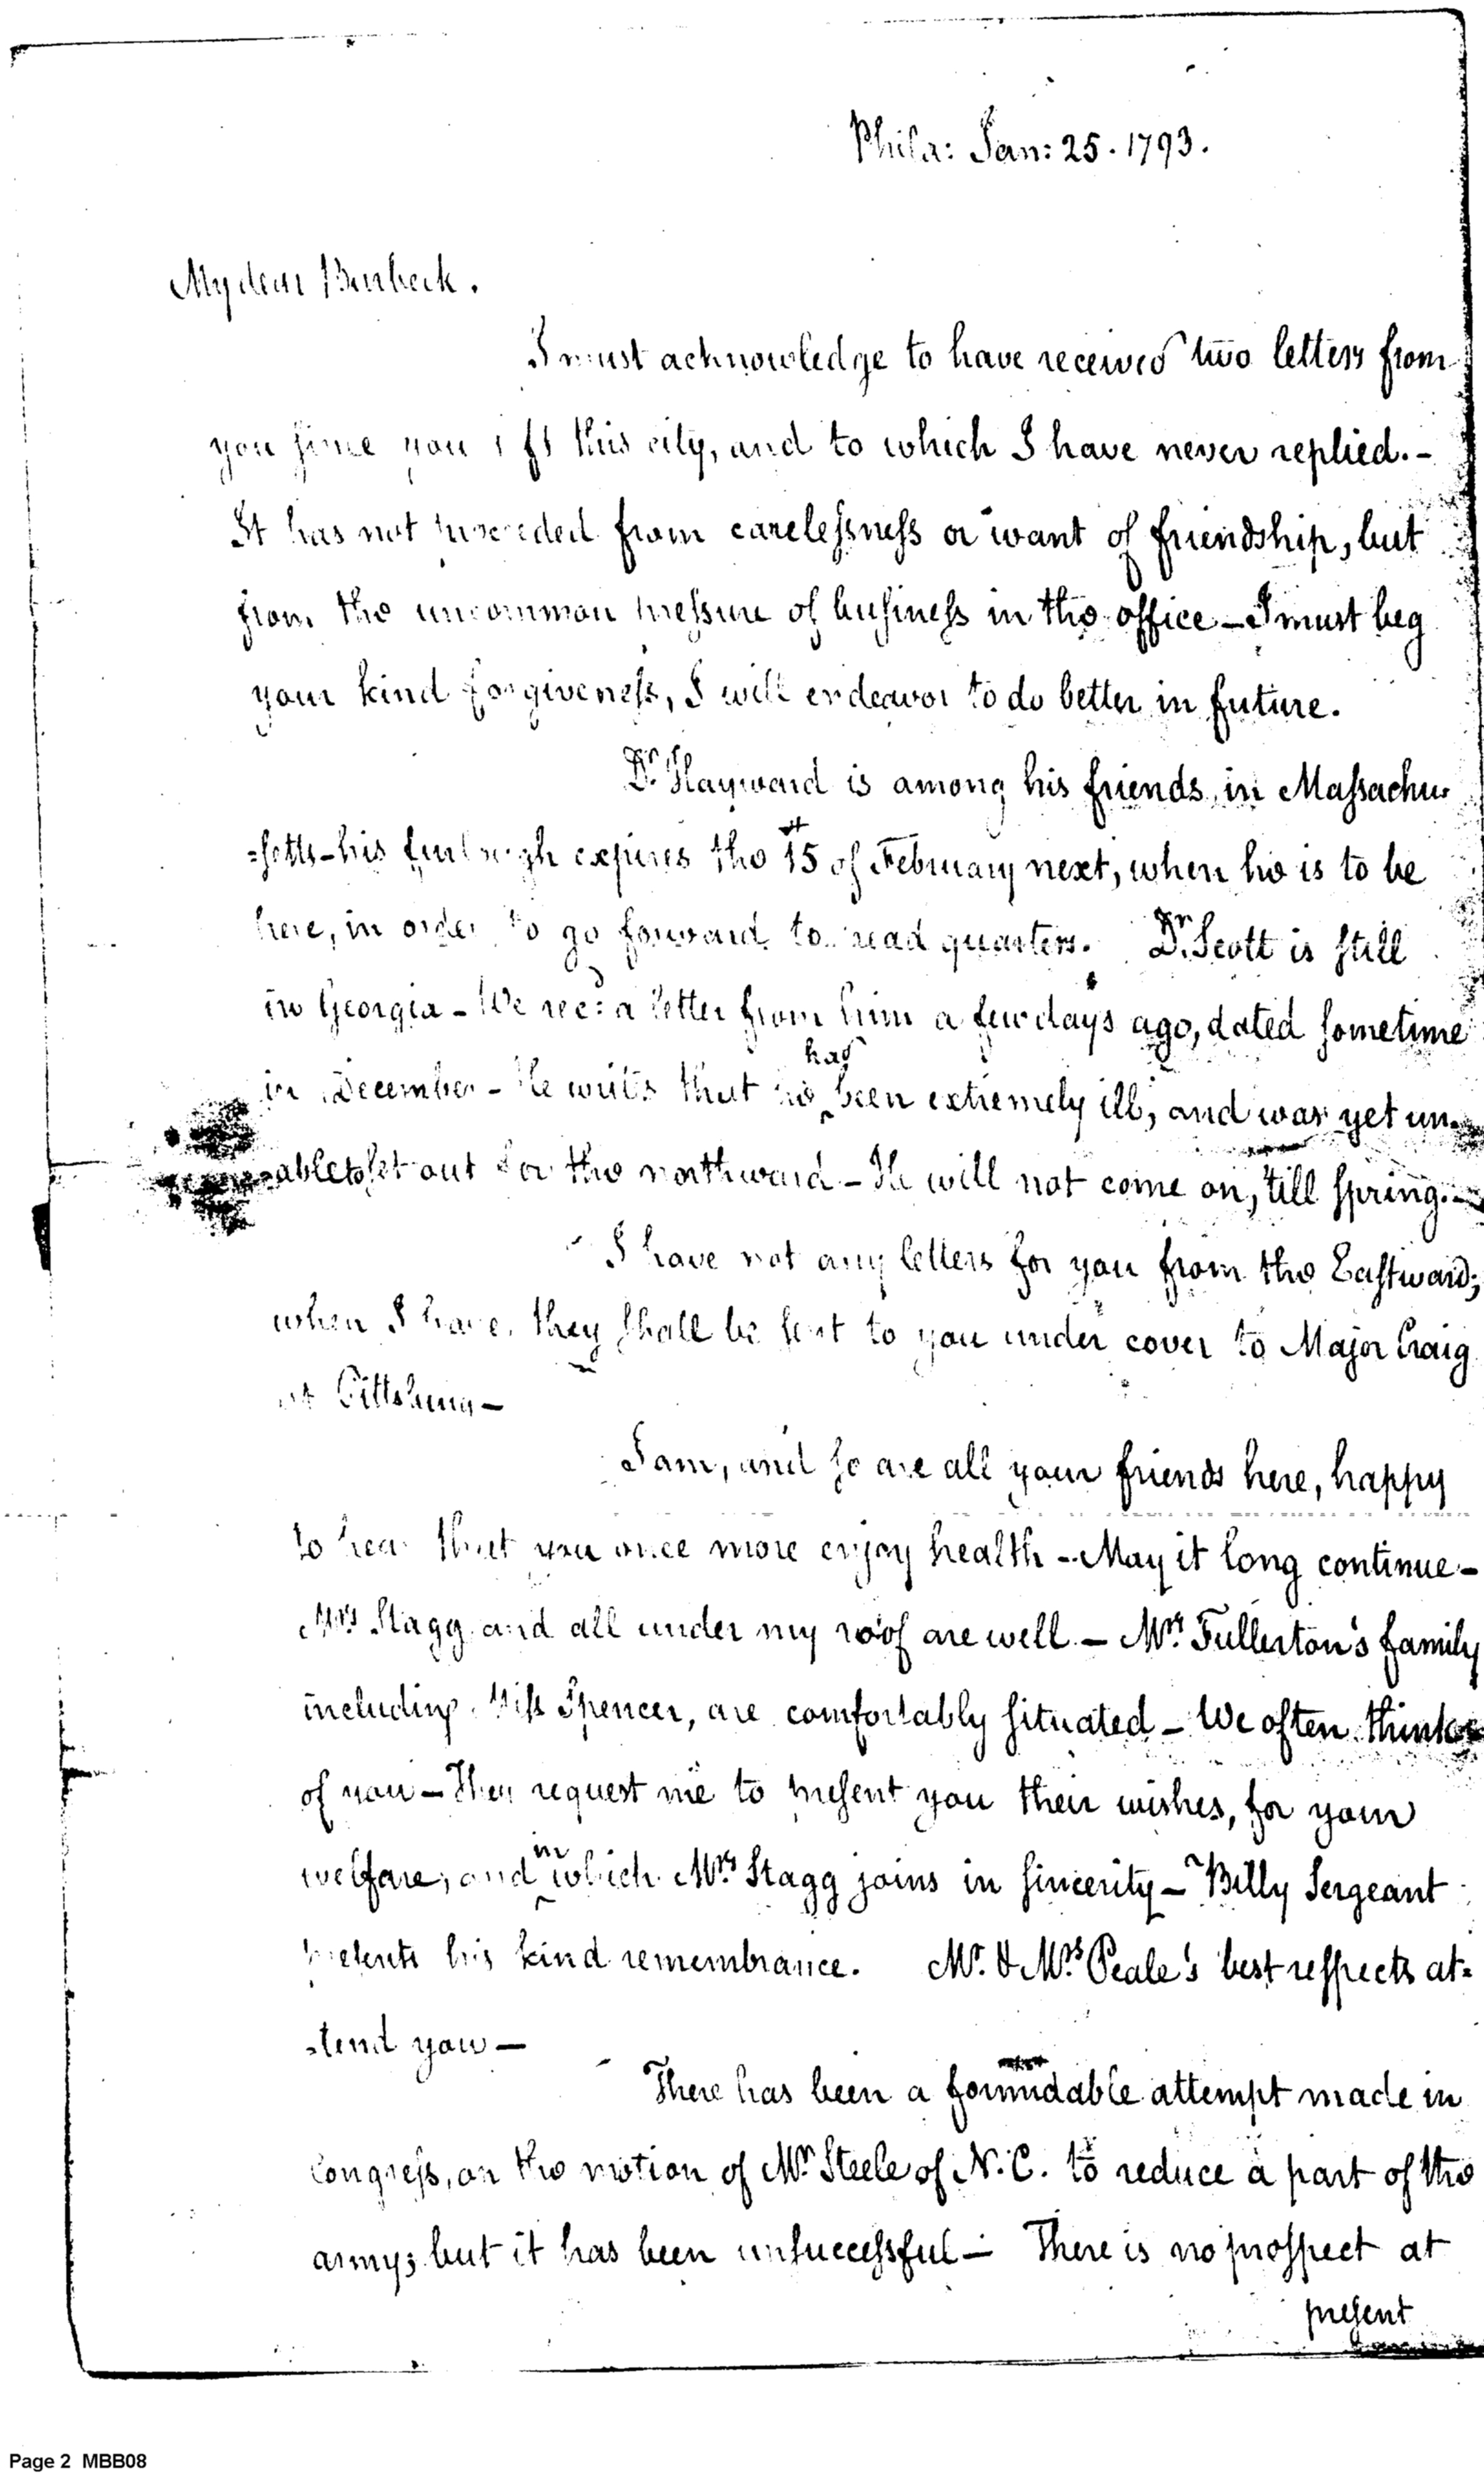 Phila: Jan: 25. 1793.
My dear Burbeck.
I must acknowledge to have received two letters from
you since you left this city, and to which I have never replied.-
It has not proceeded from carelessness or want of friendship, but
from the uncommon pressure of business in the office - I must beg
your kind forgiveness, I will endeavor to do better in future.
Dr. Hayward is among his friends in Massachu=
=setts - his furlough expires the 15 of February next, when he is to be
here, in order to go forward to head quarters. Dr. Scott is still
in Georgia - We recd: a letter from him a few days ago, dated sometime
in December - He writes that he has been extremely ill, and was yet un=
=able to set out for the northward - He will not come on, 'till spring.-
I have not any letters for you from the Eastward;
when I have, they shall be sent to you under cover to Major Craig
at Pittsburg -
I am, and so are all your friends here, happy
to hear that you once more enjoy health - May it long continue -
Mrs. Stagg and all under my roof are well - Mrs. Fullerton's family
including Miss Spencer, are comfortably situated - We often think
of you - They request me to present you their wishes, for your
welfare, and in which Mrs. Stagg joins in sincerity - Billy Sergeant
presents his kind remembrance. Mr. & Mrs. Peale's best respects at=
=tend you -
There has been a formidable attempt made in
Congress, on the motion of Mr. Steele of N.C. to reduce a part of the
army; but it has been unsuccessful - There is no prospect at
present
Page 2 MBB08